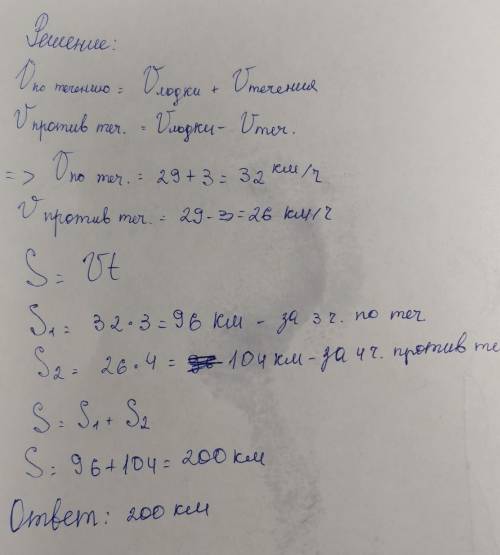 Решение:
Vпо течению = Vлодки + Vтечения
Vпротив теч. = Vлодки - Vтеч.
=> Vпо теч. = 29 + 3 = 32 км/ч
Vпротив теч. = 29 - 3 = 26 км/ч
S = Vt
S1 = 32 • 3 = 96 км - за 3 ч. по теч
S2 = 26 • 4 = 104 км - за 4 ч. против те
S = S1 + S2
S = 96 + 104 = 200 км
Ответ: 200 км